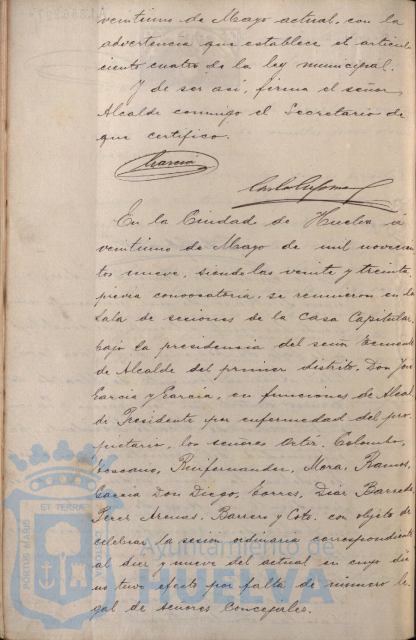 veintiuno de Mayo actual, con la
advertencia que establece el articulo
ciento cuatro de la ley municipal.
Y de ser asi, firma el señor
Alcalde conmigo el Secretario de
que certifico.
Garcia
En la Ciudad de Huelva á
veintiuno de Mayo de mil novecien
tos nueve, siendo las veinte y treinta,
previa convocatoria, se reunieron en la
Sala de sesiones de la Casa Capitular,
bajo la presidencia del señor Teniente
de Alcalde del primer distrito, Don José
Garcia y Garcia, en funciones de Alcal
de Presidente por enfermedad del pro
pietario, los señores Ortiz, Colombo,
Toscano, Ruifernandez, Mora, Ramos,
Garcia Don Diego, Torres, Diaz Barreda
Perez Arenas, Barrero y Coto, con objeto de
celebrar la sesion ordinaria correspondiente
al diez y nueve del actual en cuyo dia
no tuvo efecto por falta de número le
gal de señores Concejales.
PORTUS MARIS
ET TERRAE
Ayuntamiento de
HUELVA